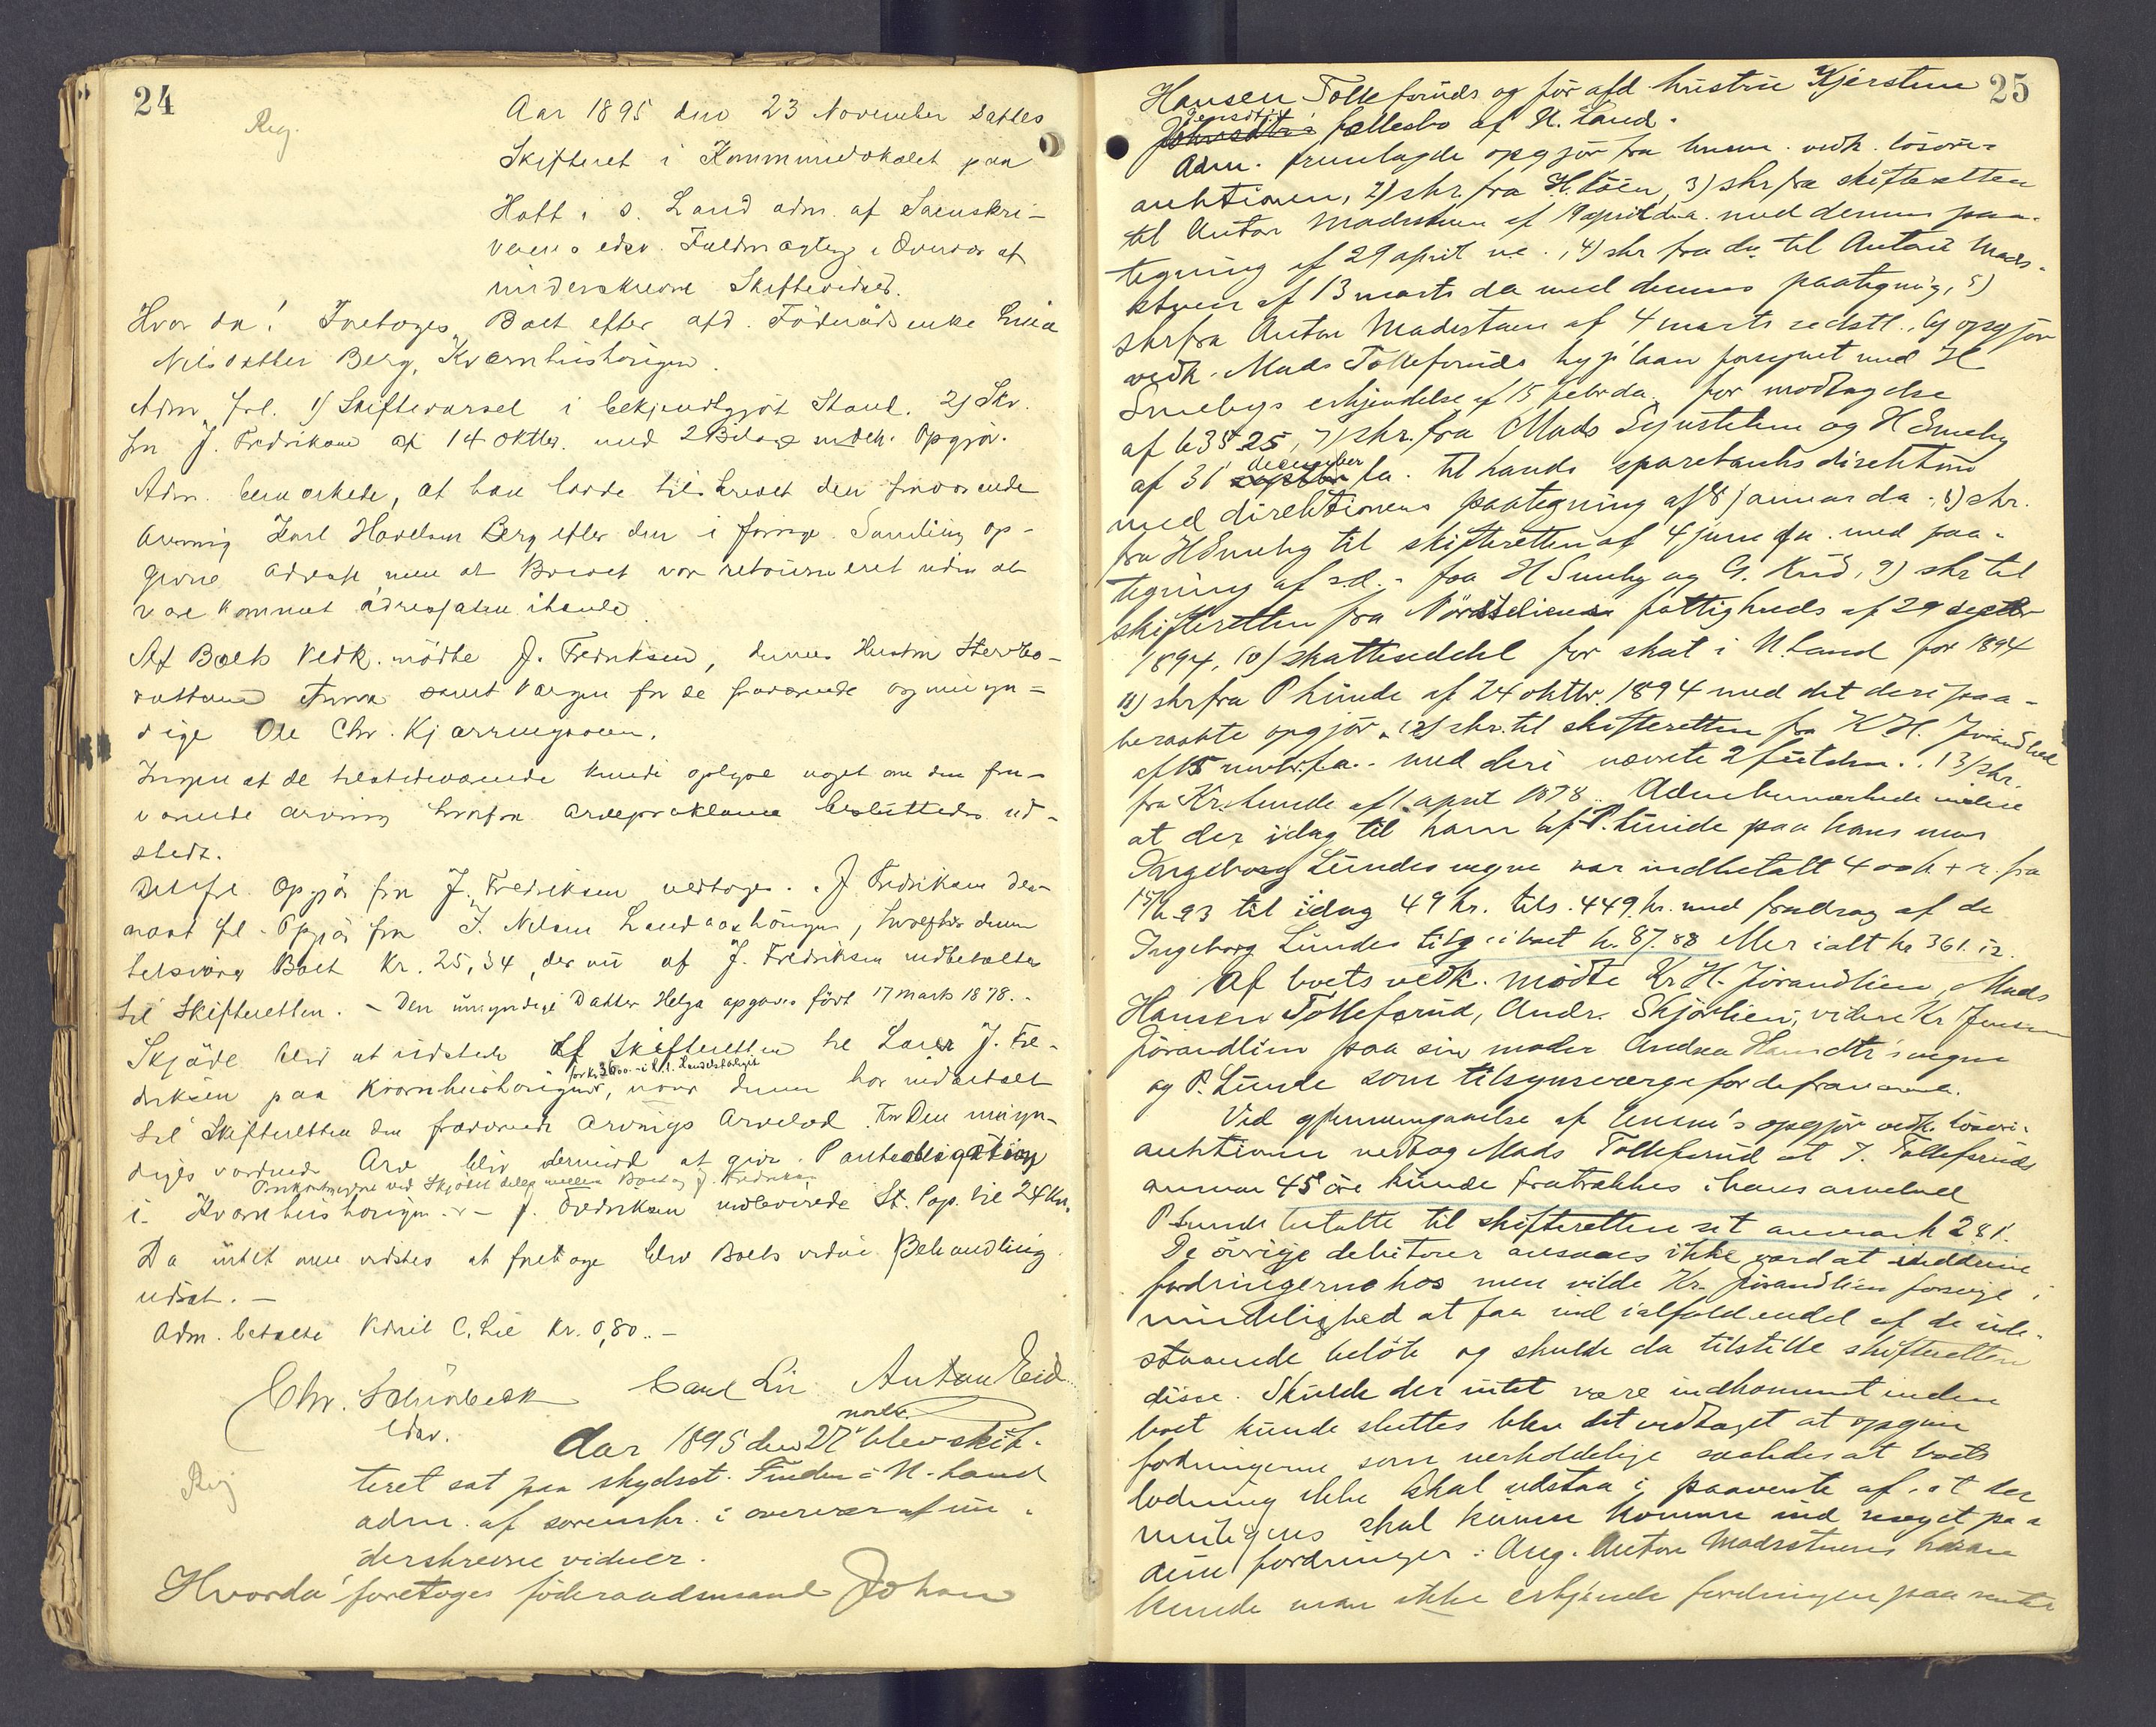 24
Reg.
Aar 1895 den 23 November sattes
Skifteret i Kommunelokalet paa
Hoff i S. Land adm. af Sorenskri-
verens edsv. Fuldmægtig i Overvær af
underskrevne Skiftevidner.
Hvor da! Foretoges Boet efter afd. Föderådsenke
Nilsdatter Berg, Kværnhushaugen.
Adm. frl. 1) Skiftevarsel i bekjendtgjort Stand. 2) Skr.
fra J. Fredriksen af 14 Oktbr. med 2 Bilage vedk. Opgjör.
Adm. bemærkede, at han havde tilskrevet den fraværende
Arving Karl Hovelsen Berg efter den i forrige Samling op-
givne Adresse men at Brevet var retourneret uden at
være kommet adressaten ihænde.
Af Boets Vedk. mödte J. Fredriksen, dennes Hustru Stervbo-
datteren Anna samt Værgen for de fraværende og umyn-
dige Ole Chr. Kjærringsveen.
Ingen af de tilstedeværende kunde oplyse noget om den fra-
værende Arving hvorfor Arveproklama besluttedes ud-
stedt.
Opgjör fra J. Fredriksen vedtoges. J. Fredriksen der-
næst frl. Opgjör fra J. Nilsen Landaashaugen, hvorefter denne
Boet Kr. 25,34, der nu af J. Fredriksen indbetaltes
til Skifteretten. - Den umyndige Datter Helga opgaves födt 17 marts 1878. -
Skjöde blev at udstede af Skifteretten til J. Fre-
for kr. 3600
driksen paa Kværnhushaugen, naar denne har indbetalt
til Skifteretten den fraværende Arvings Arvelod. For Den umyn-
diges vordende Arv blir derimod at give Panteobligation
ved Skjödet deles mellem Boet og J. Fredriksen
i Kværnhushaugen. - J. Fredriksen indleverede St. Pap. til 24 Kr.
Da intet mere vidstes at foretage blev Boets videre Behandling
udsat. -
Adm. betalte Vidnet C. Lie Kr. 0,80. -
Chr. Schiörbeck Carl Lie Anton Eid
edsv.
novbr.
Reg
Aar 1895 den 27' blev skif-
teret sat paa skydsst. Finden i N. Land
adm. af sorenskr. i overvær af un-
derskrevne vidner.
Hvorda' foretoges föderaadsmand Johan
25
Hansen Tollefsruds og för afd. hustru Kjerstine
Jensdtr's
fællesbo af N. Land.
Adm. fremlagde opgjör fra lensm. vedk. lösöre-
auktionen, 2) skr. fra H. Löen, 3) skr fra skifteretten
til Anton Madsstuen af 19 april da. med dennes paa-
tegning af 29 april ne., 4) skr fra do til Anton Mads-
stuen af 13 marts da med dennes paategning, 5)
skr fra Anton Madsstuen af 4 marts sidstl., 6) opgjör
vedk. Mads Tollefsruds hyp. laan forsynet med H
Smebys erkjendelse af 15 febr da. for modtagelse
af 635.25, 7) skr. fra Mads Sejnstuen og H Smeby
december
af 31' fa. til Lands sparebanks direktion
med direktionens paategning af 8 januar da, 8) skr.
fra H Smeby til skifteretten af 4 juni da. med paa-
tegning af s.d. - fra H Smeby og G. Rud, 9) skr til
skifteretten fra Nordseliens fattigkreds af 29 septbr
1894, 10) skatteseddel for skat i N. Land for 1894
11) skr fra P Lunde af 24 oktbr. 1894 med det deri paa-
beraabte opgjör, 12) skr. til skifteretten fra K H. Jörandlien
af 15 novbr. fa. med deri nævnte 2 13) skr.
fra Kr. Lunde af 1 april 1878. Adm bemærkede videre
at der idag til ham af P. Lunde paa hans mor
Ingeborg Lundes vegne var indbetalt 400 k + r. fra
93 til idag 49 kr. tils. 449. kr. med fradrag af de
Ingeborg Lundes tilg. i boet k. 87.88 eller ialt kr 361.12.
Af boets vedk. mödte Kr H. Jörandlien, Mads
Hansen Tollefsrud, Andr. Skjölien, videre Kr Jensen
Jörandlien paa sin moder Andrea Hansdtr's vegne
og P. Lunde som tilsynsværge for de fraværende.
Ved gjennemgaaelse af lensm's opgjör vedk. lösöre-
auktionen vedtog Mads Tollefsrud at J. Tollefsruds
45 öre kunde fratrækkes i hans arvelod
P Lunde betalte til skifteretten sit k 281.
De övrige debitorer ansaaes ikke værd at inddrive
fordringerne hos men vilde Kr. Jörandlien forsöge i
mindelighed at faa ind ialfald endel af de ude-
staaende belöb og skulde da tilstille skifteretten
disse. Skulde der intet være indkommet inden
boet kunde sluttes blev det vedtaget at opgive
fordringerne som uerholdelige saaledes at boets
lodning ikke skal udstaa i paavente af at der
muligens skal kunne komme ind noget paa
disse fordringer. Ang. Anton Madsstuens
kunde man ikke erkjende fordringen paa renter